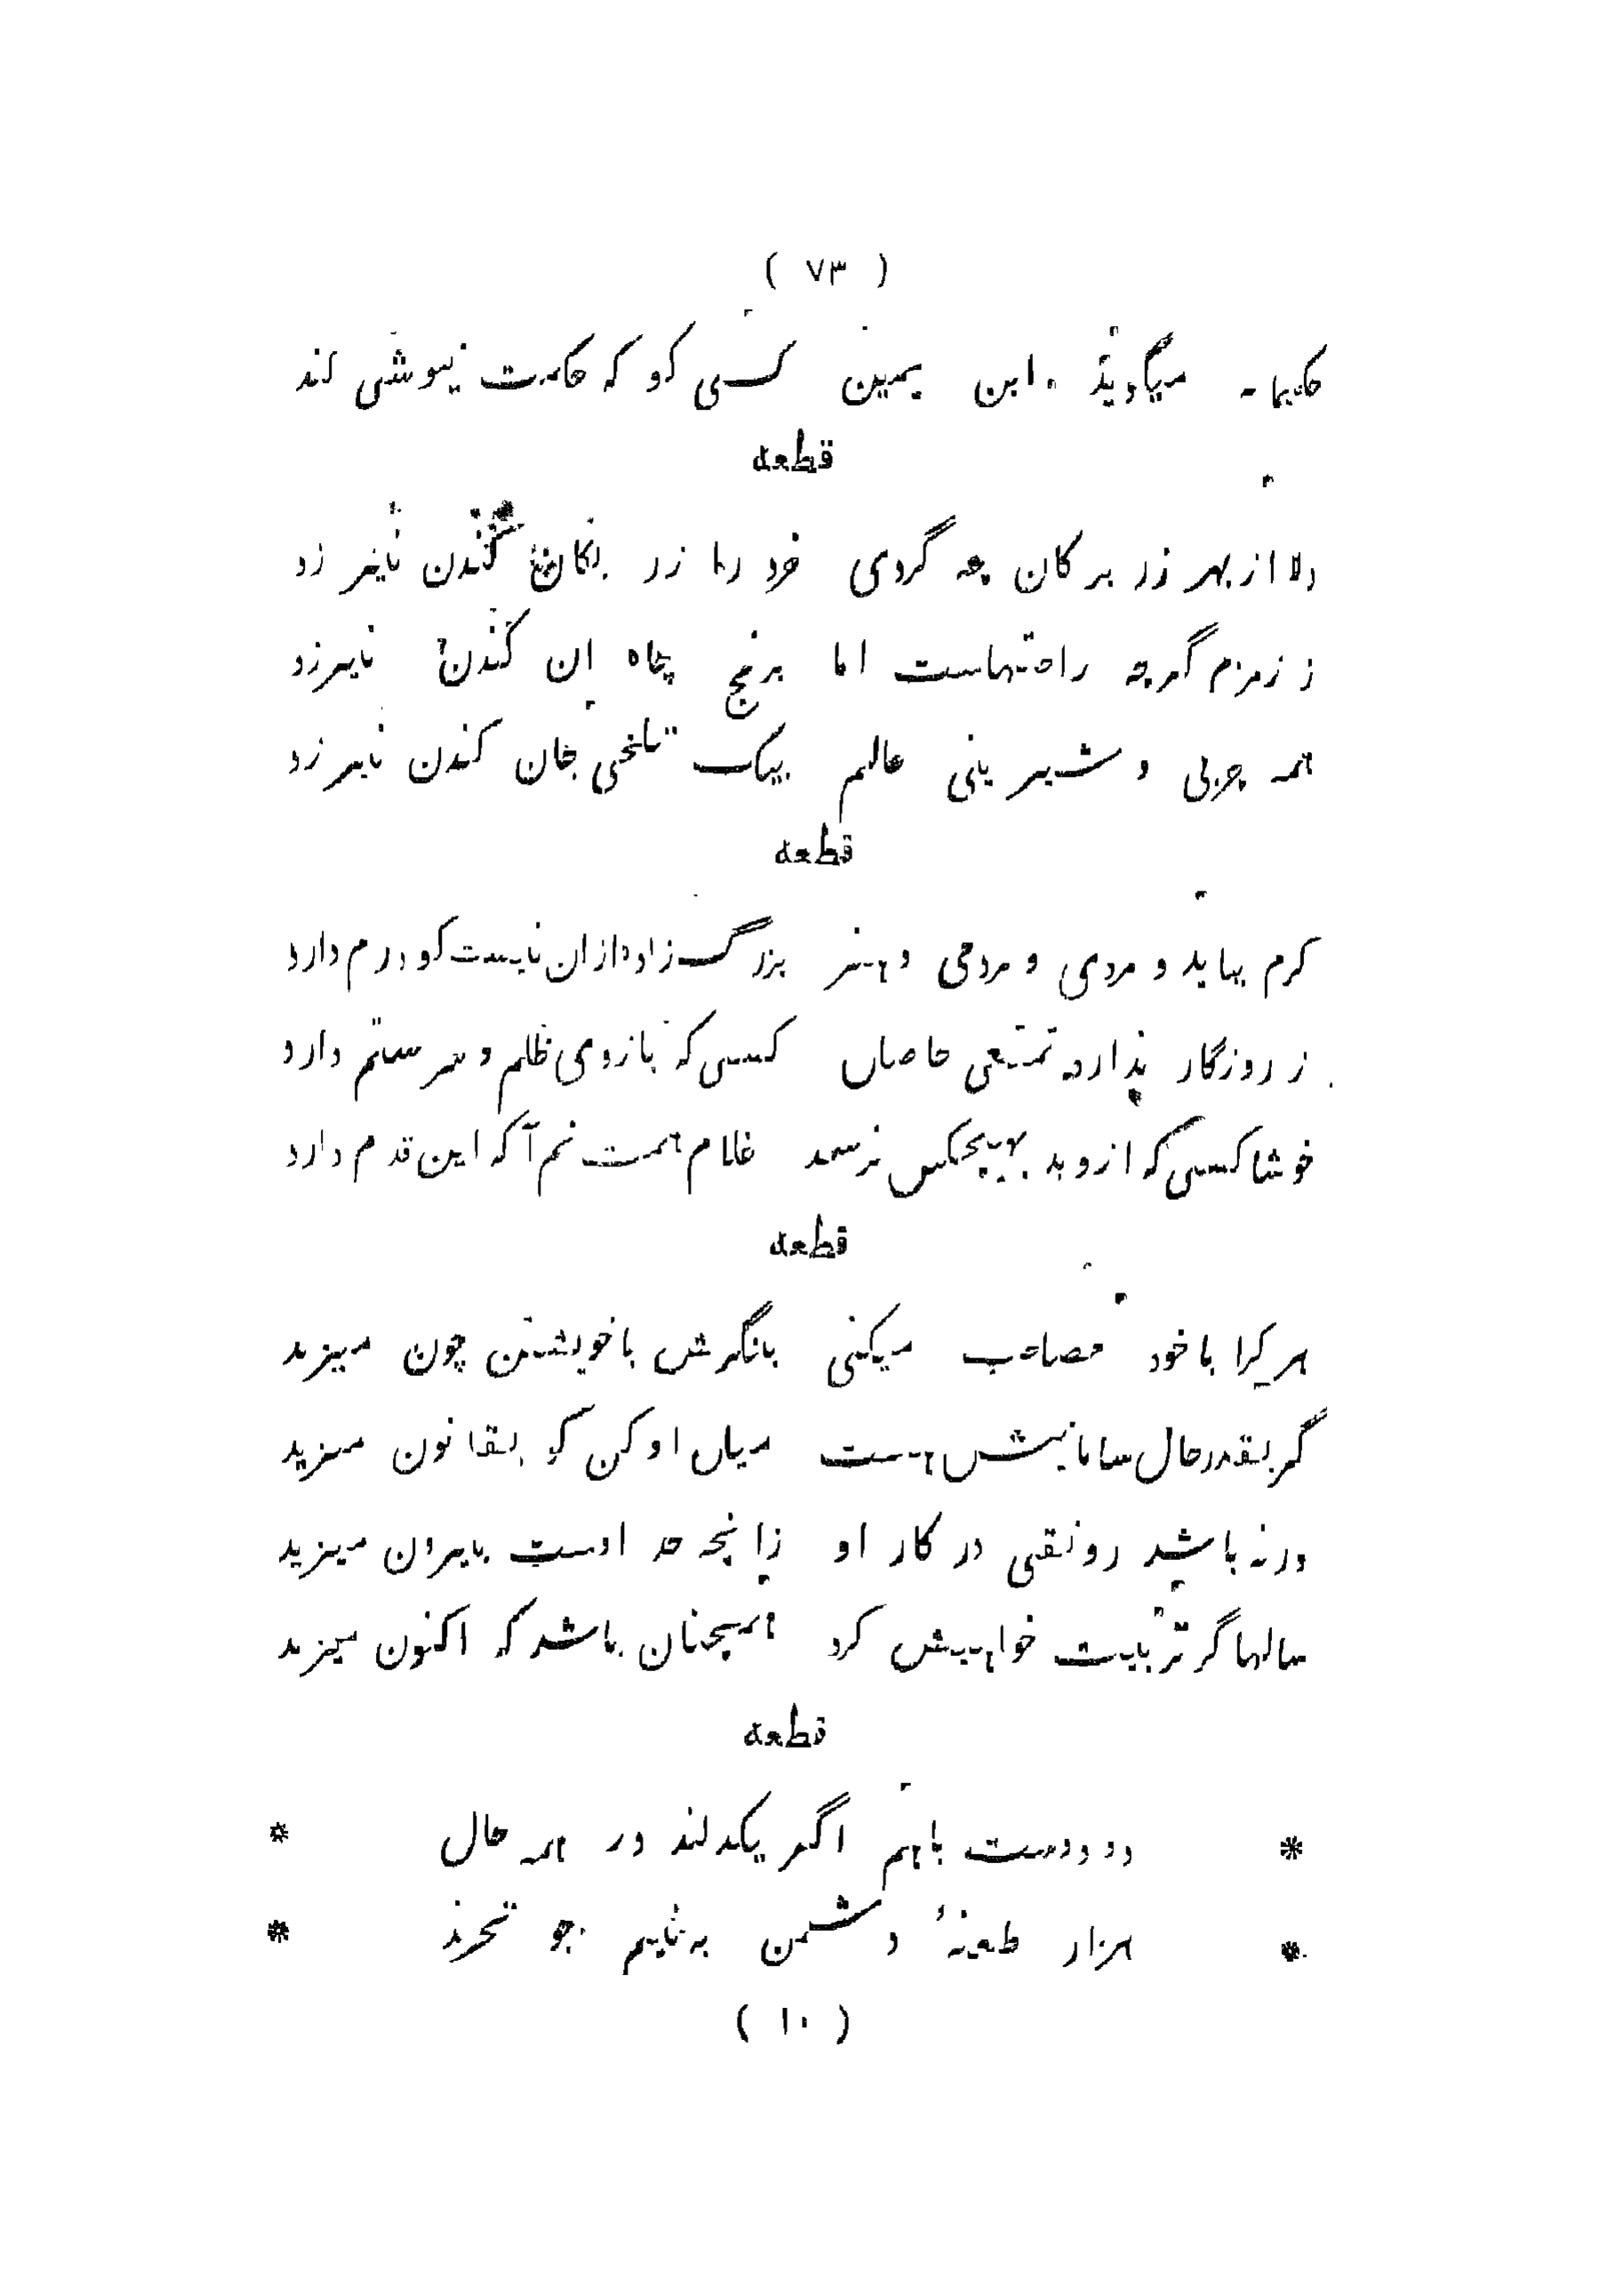 ( ۷۳ )
حکیمانه میگوید ابن یمین کسی کو که حکمت نیوشی کند
قطعه
دلا از بهر زر بر کان چه گردی خود را زر بکان کندن نیرزد
ز زمزم گرچه راحتهاست اما برنج چاه ان کندن نیرزد
همه چربی و شیرینی عالم بیک تلخی جان کندن نیرزد
قطعه
کرم بباید و مردی و مردمی و هنر بزرگ زاده ازان نیست کو درم دارد
ز روزگار ندارد تمتعی حاصل کسی که بازوی ظلم و سر ستم دارد
خوشا کسی که ازو بد بهیچکس نرسد غلام همت نم آ که این قدم دارد
قطعه
هر کرا با خود مصاحب میکنی بانگرش با خویشتن چون میزید
گر بقدر حال سامانیش هست میل او کن کو بقانون میزید
ور نه باشد رونقی در کار او زانچه حد اوست بیرون میزید
سالها گر تربیت خواهیش کرد همچنان باشد که اکنون میزید
قطعه
* دو دوست باهم اگر یکدلند در همه حال *
* هزار طعنهٔ دشمن به نیم جو نخرند *
( ۱۰ )